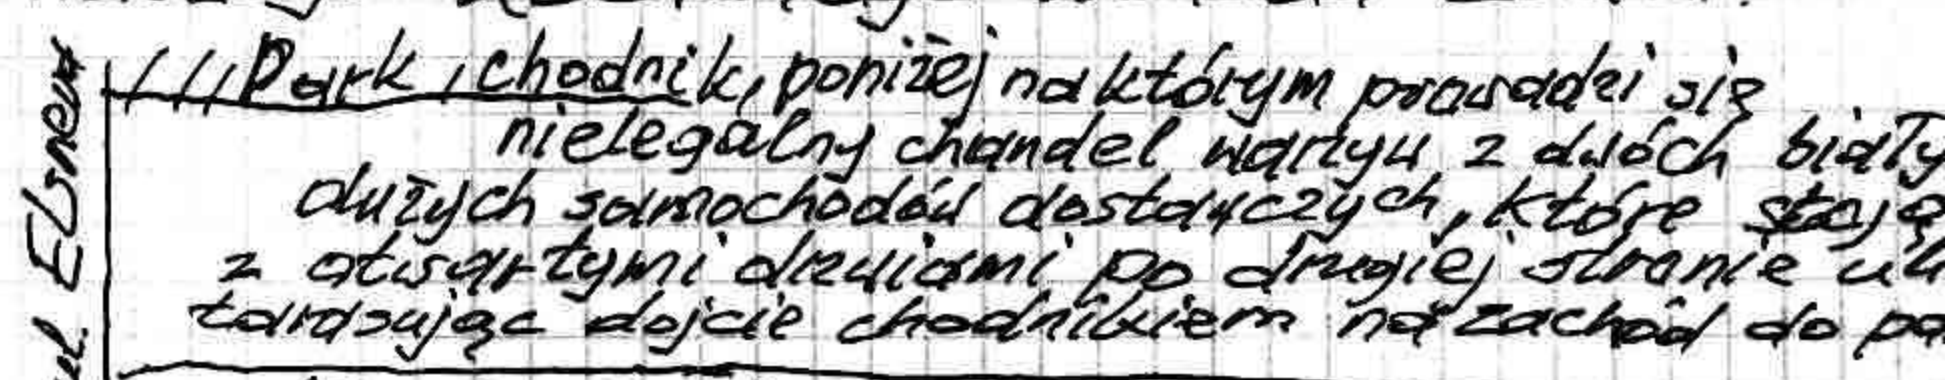 Park, chodnik, poniżej na którym prowadzi się
nielegalny chandel warzyw z dwóch biały
dużych samochodów dostawczych, które stoją
z otwartymi drzwiami po drugiej stronie ul
tarasując dojcie chodnikiem na zachód do pa
ul. Elsnera